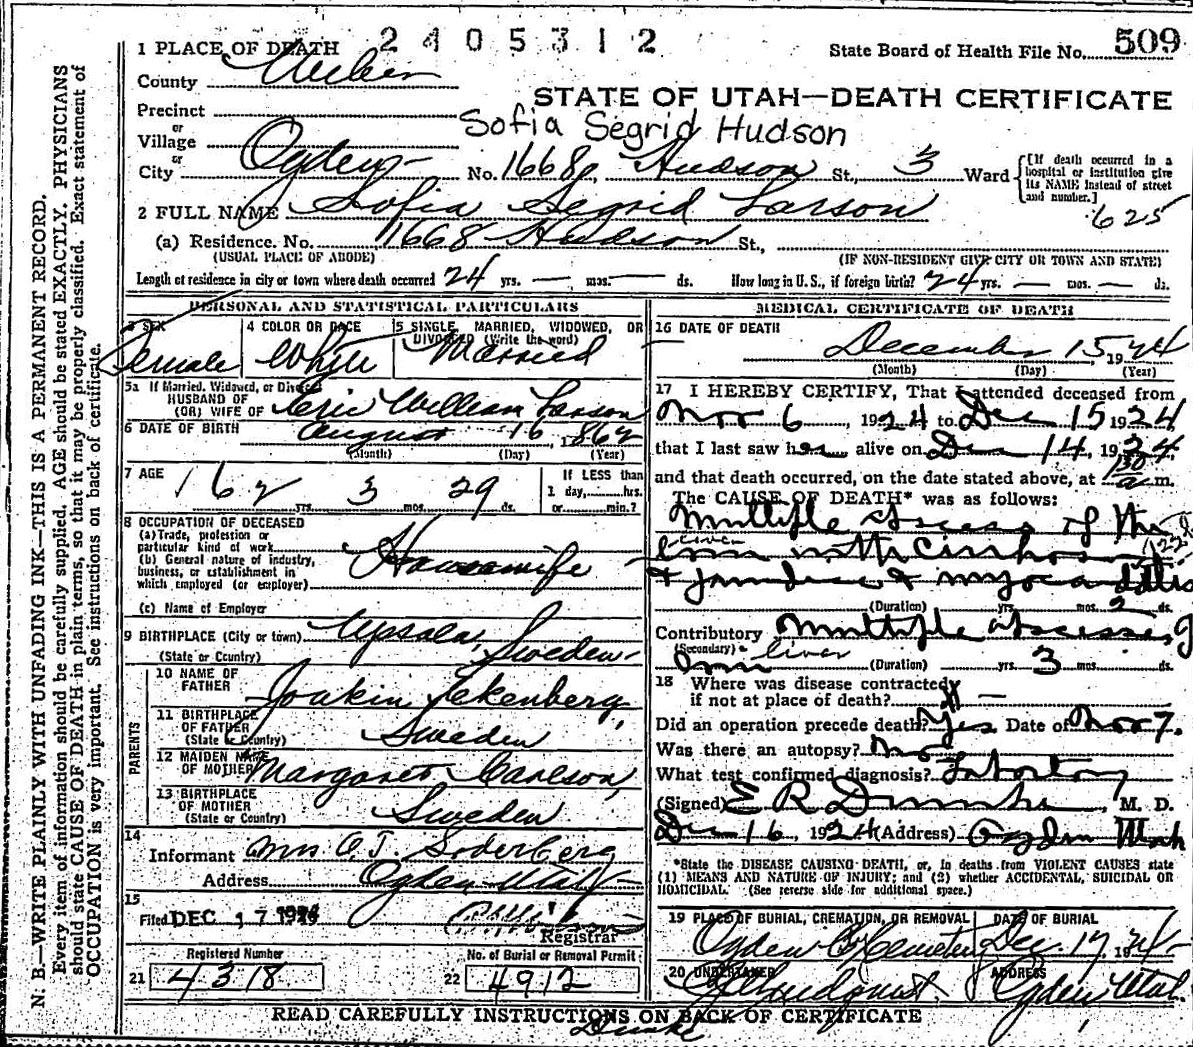 2405312
1 PLACE OF DEATH
State Board of Health File No. 509
County Weber
STATE OF UTAH—DEATH CERTIFICATE
Precinct
or
Village
Sofia Segrid Hudson
or
City Ogden No. 1668 Hudson St., 3 Ward
[If death occurred in a hospital or institution give its NAME instead of street and number.]
625
2 FULL NAME Sofia Segrid Larson
(a) Residence. No. 1668 Hudson St.,
(USUAL PLACE OF ABODE) (IF NON-RESIDENT GIVE CITY OR TOWN AND STATE)
Length of residence in city or town where death occurred 24 yrs. — mos. — ds. How long in U. S., if foreign birth? 24 yrs. — mos. — ds.
PERSONAL AND STATISTICAL PARTICULARS
3 SEX
Female
4 COLOR OR RACE
White
5 SINGLE, MARRIED, WIDOWED, OR DIVORCED (Write the word)
Married
5a If Married, Widowed, or Divorced
HUSBAND OF
(OR) WIFE OF Eric William Larson
6 DATE OF BIRTH August 16, 1862
(Month) (Day) (Year)
7 AGE 62 yrs. 3 mos. 29 ds.
If LESS than
1 day, hrs.
or min.?
8 OCCUPATION OF DECEASED
(a) Trade, profession or
particular kind of work
(b) General nature of industry,
business, or establishment in
which employed (or employer)
Housewife
(c) Name of Employer
9 BIRTHPLACE (City or town) Upsala,
(State or Country) Sweden
PARENTS
10 NAME OF
FATHER Joakin Ekenberg,
11 BIRTHPLACE
OF FATHER
(State or Country) Sweden
12 MAIDEN NAME
OF MOTHER Margaret Carlson,
13 BIRTHPLACE
OF MOTHER
(State or Country) Sweden
14
Informant Mrs O. T. Soderberg
Address Ogden Utah
15
Filed DEC 17 1924
Registrar
Registered Number
21 4318
No. of Burial or Removal Permit
22 4912
MEDICAL CERTIFICATE OF DEATH
16 DATE OF DEATH
December 15, 1924
(Month) (Day) (Year)
17 I HEREBY CERTIFY, That I attended deceased from
Nov 6, 1924 to Dec 15 1924
that I last saw her alive on Dec 14, 1924
and that death occurred, on the date stated above, at 130 a m.
The CAUSE OF DEATH* was as follows:
Multiple abscess of the
liver with cirrhosis
& jaundice & myocarditis
(Duration) yrs. mos. 2 ds.
Contributory Multiple abscesses of
(Secondary) liver
(Duration) yrs. 3 mos. ds.
18 Where was disease contracted
if not at place of death? —
Did an operation precede death? Yes Date of Nov 7.
Was there an autopsy? No
What test confirmed diagnosis? Labortory
(Signed) E R Dumke, M. D.
Dec 16, 1924 (Address) Ogden Utah
*State the DISEASE CAUSING DEATH, or, in deaths from VIOLENT CAUSES state
(1) MEANS AND NATURE OF INJURY; and (2) whether ACCIDENTAL, SUICIDAL OR
HOMICIDAL. (See reverse side for additional space.)
19 PLACE OF BURIAL, CREMATION, OR REMOVAL
Ogden City Cemetery
DATE OF BURIAL
Dec. 17, 1924
20 UNDERTAKER
Lindquist
ADDRESS
Ogden, Utah
READ CAREFULLY INSTRUCTIONS ON BACK OF CERTIFICATE
Dumke
N. B.—WRITE PLAINLY WITH UNFADING INK—THIS IS A PERMANENT RECORD.
Every item of information should be carefully supplied. AGE should be stated EXACTLY. PHYSICIANS
should state CAUSE OF DEATH in plain terms, so that it may be properly classified. Exact statement of
OCCUPATION is very important. See instructions on back of certificate.